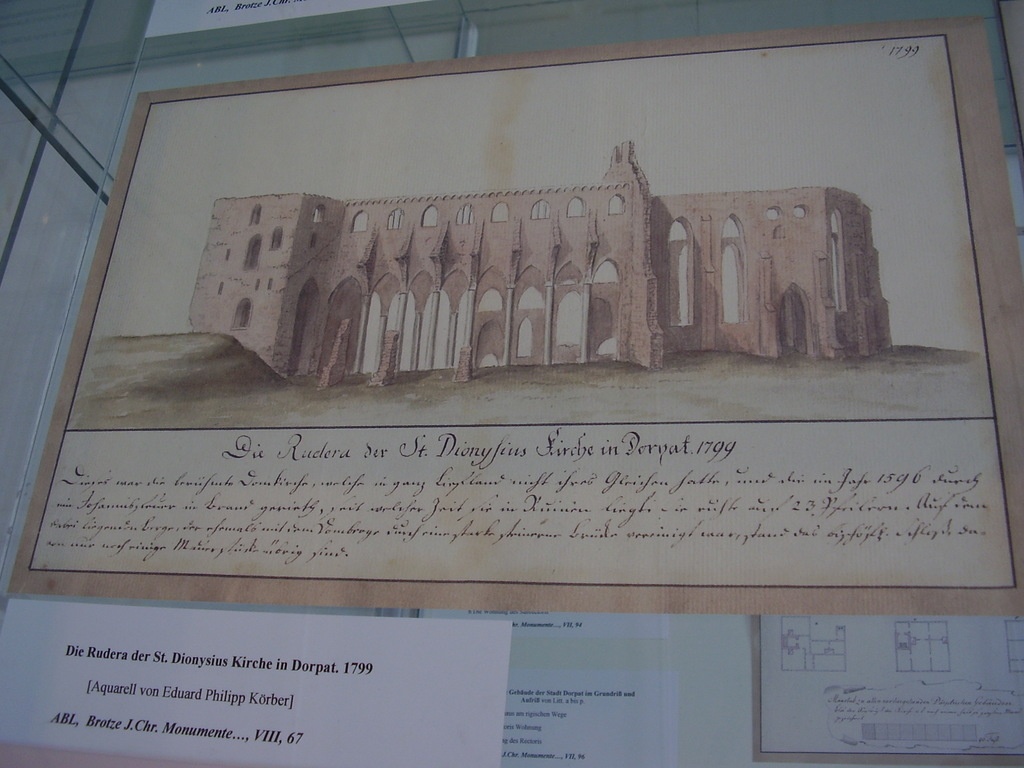 ABL, Brotze J.Chr.
1799
Die Rudera der St. Dionysius Kirche in Dorpat. 1799
Dieses war die berühmte Domkirche, welche in ganz Liefland nicht ihres Gleichen hatte, und die im Jahr 1596 durch
ein Johannisfeuer in Brand gerieth, seit welcher Zeit sie in Ruinen liegt. Sie ruht auf 23 Pfeilern. Auf dem
dabei liegenden Berge, der ehemals mit dem Domberge durch eine starke steinerne Brücke vereinigt war, stand das bischöfl. Schloß, da-
von nur noch einige Mauerstücke übrig sind.
Die Rudera der St. Dionysius Kirche in Dorpat. 1799
[Aquarell von Eduard Philipp Körber]
ABL, Brotze J.Chr. Monumente..., VIII, 67
Chr. Monumente..., VII, 94
Gebäude der Stadt Dorpat im Grundriß und
Aufriß von Litt. a bis p.
am rigischen Wege
Wohnung
des Rectoris
J.Chr. Monumente..., VII, 96